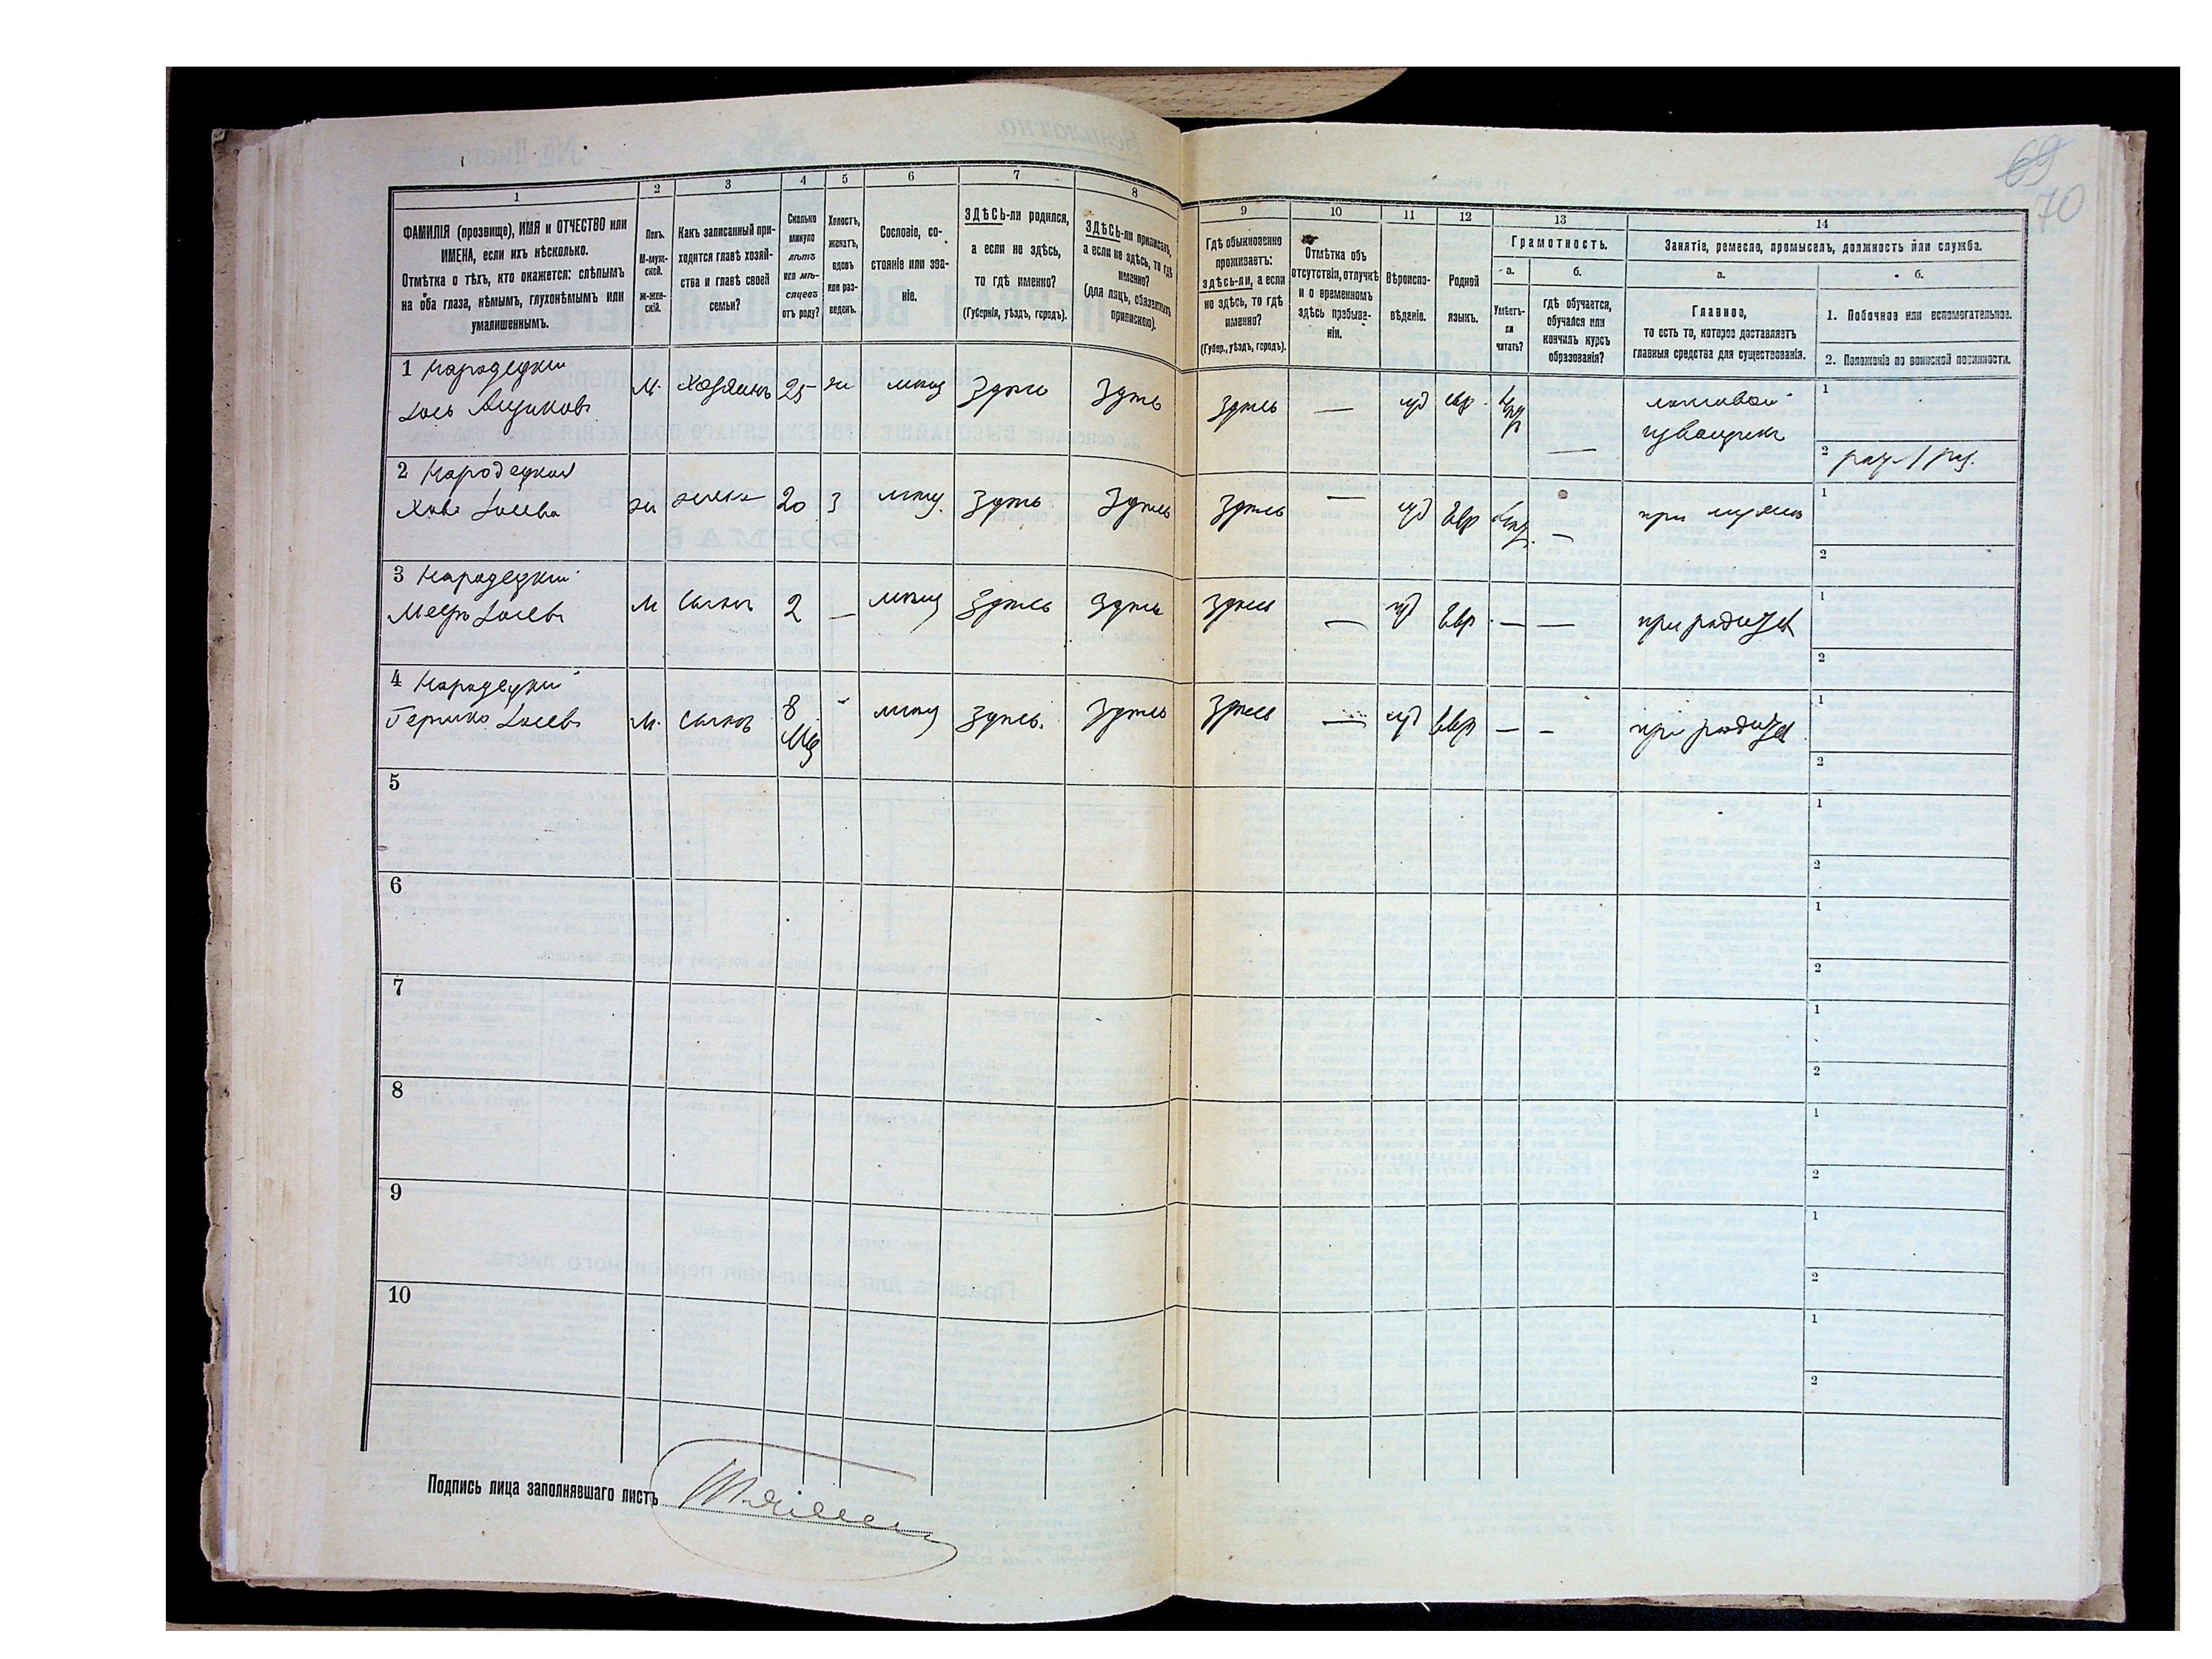 69
70
1
2
3
4
5
6
7
8
9
10
11
12
13
14
ФАМИЛІЯ (прозвище), ИМЯ и ОТЧЕСТВО или
ИМЕНА, если ихъ нѣсколько.
Отмѣтка о тѣхъ, кто окажется: слѣпымъ
на оба глаза, нѣмымъ, глухонѣмымъ или
умалишеннымъ.
Полъ.
М-муж-
ской.
Ж-жен-
скій.
Какъ записанный при-
ходится главѣ хозяй-
ства и главѣ своей
семьи?
Сколько
минуло
лѣтъ
или мѣ-
сяцевъ
отъ роду?
Холостъ,
женатъ,
вдовъ
или раз-
веденъ.
Сословіе, со-
стояніе или зва-
ніе.
ЗДѢСЬ-ли родился,
а если не здѣсь,
то гдѣ именно?
(Губернія, уѣздъ, городъ).
ЗДѢСЬ-ли приписанъ,
а если не здѣсь, то гдѣ
именно?
(для лицъ, обязанныхъ
припискою).
Гдѣ обыкновенно
проживаетъ:
здѣсь-ли, а если
не здѣсь, то гдѣ
именно?
(Губер., уѣздъ, городъ).
Отмѣтка объ
отсутствіи, отлучкѣ
и о временномъ
здѣсь пребыва-
ніи.
Вѣроиспо-
вѣданіе.
Родной
языкъ.
Грамотность.
а.
б.
Умѣетъ-
ли
читать?
гдѣ обучается,
обучался или
кончилъ курсъ
образованія?
Занятіе, ремесло, промыселъ, должность или служба.
а.
б.
Главное,
то есть то, которое доставляетъ
главныя средства для существованія.
1. Побочное или вспомогательное.
2. Положеніе по воинской повинности.
1 Народецкій
М. хозяинъ 25 ж мѣщ здѣсь здѣсь здѣсь — іуд евр — легковой
извощикъ
1
2
2 Народецкая
Хава ж жена 20 З мѣщ. здѣсь здѣсь здѣсь — іуд Евр — при мужѣ
1
2
3 Народецкій
М сынъ 2 — мѣщ здѣсь здѣсь здѣсь — іуд Евр — — при родител
1
2
4 Народецкій
Гершко М. сынъ 8 мѣщ здѣсь. здѣсь здѣсь — іуд Евр — — при родител
Мѣ
1
2
5
1
2
6
1
2
7
1
2
8
1
2
9
1
2
10
1
2
Подпись лица заполнявшаго листъ